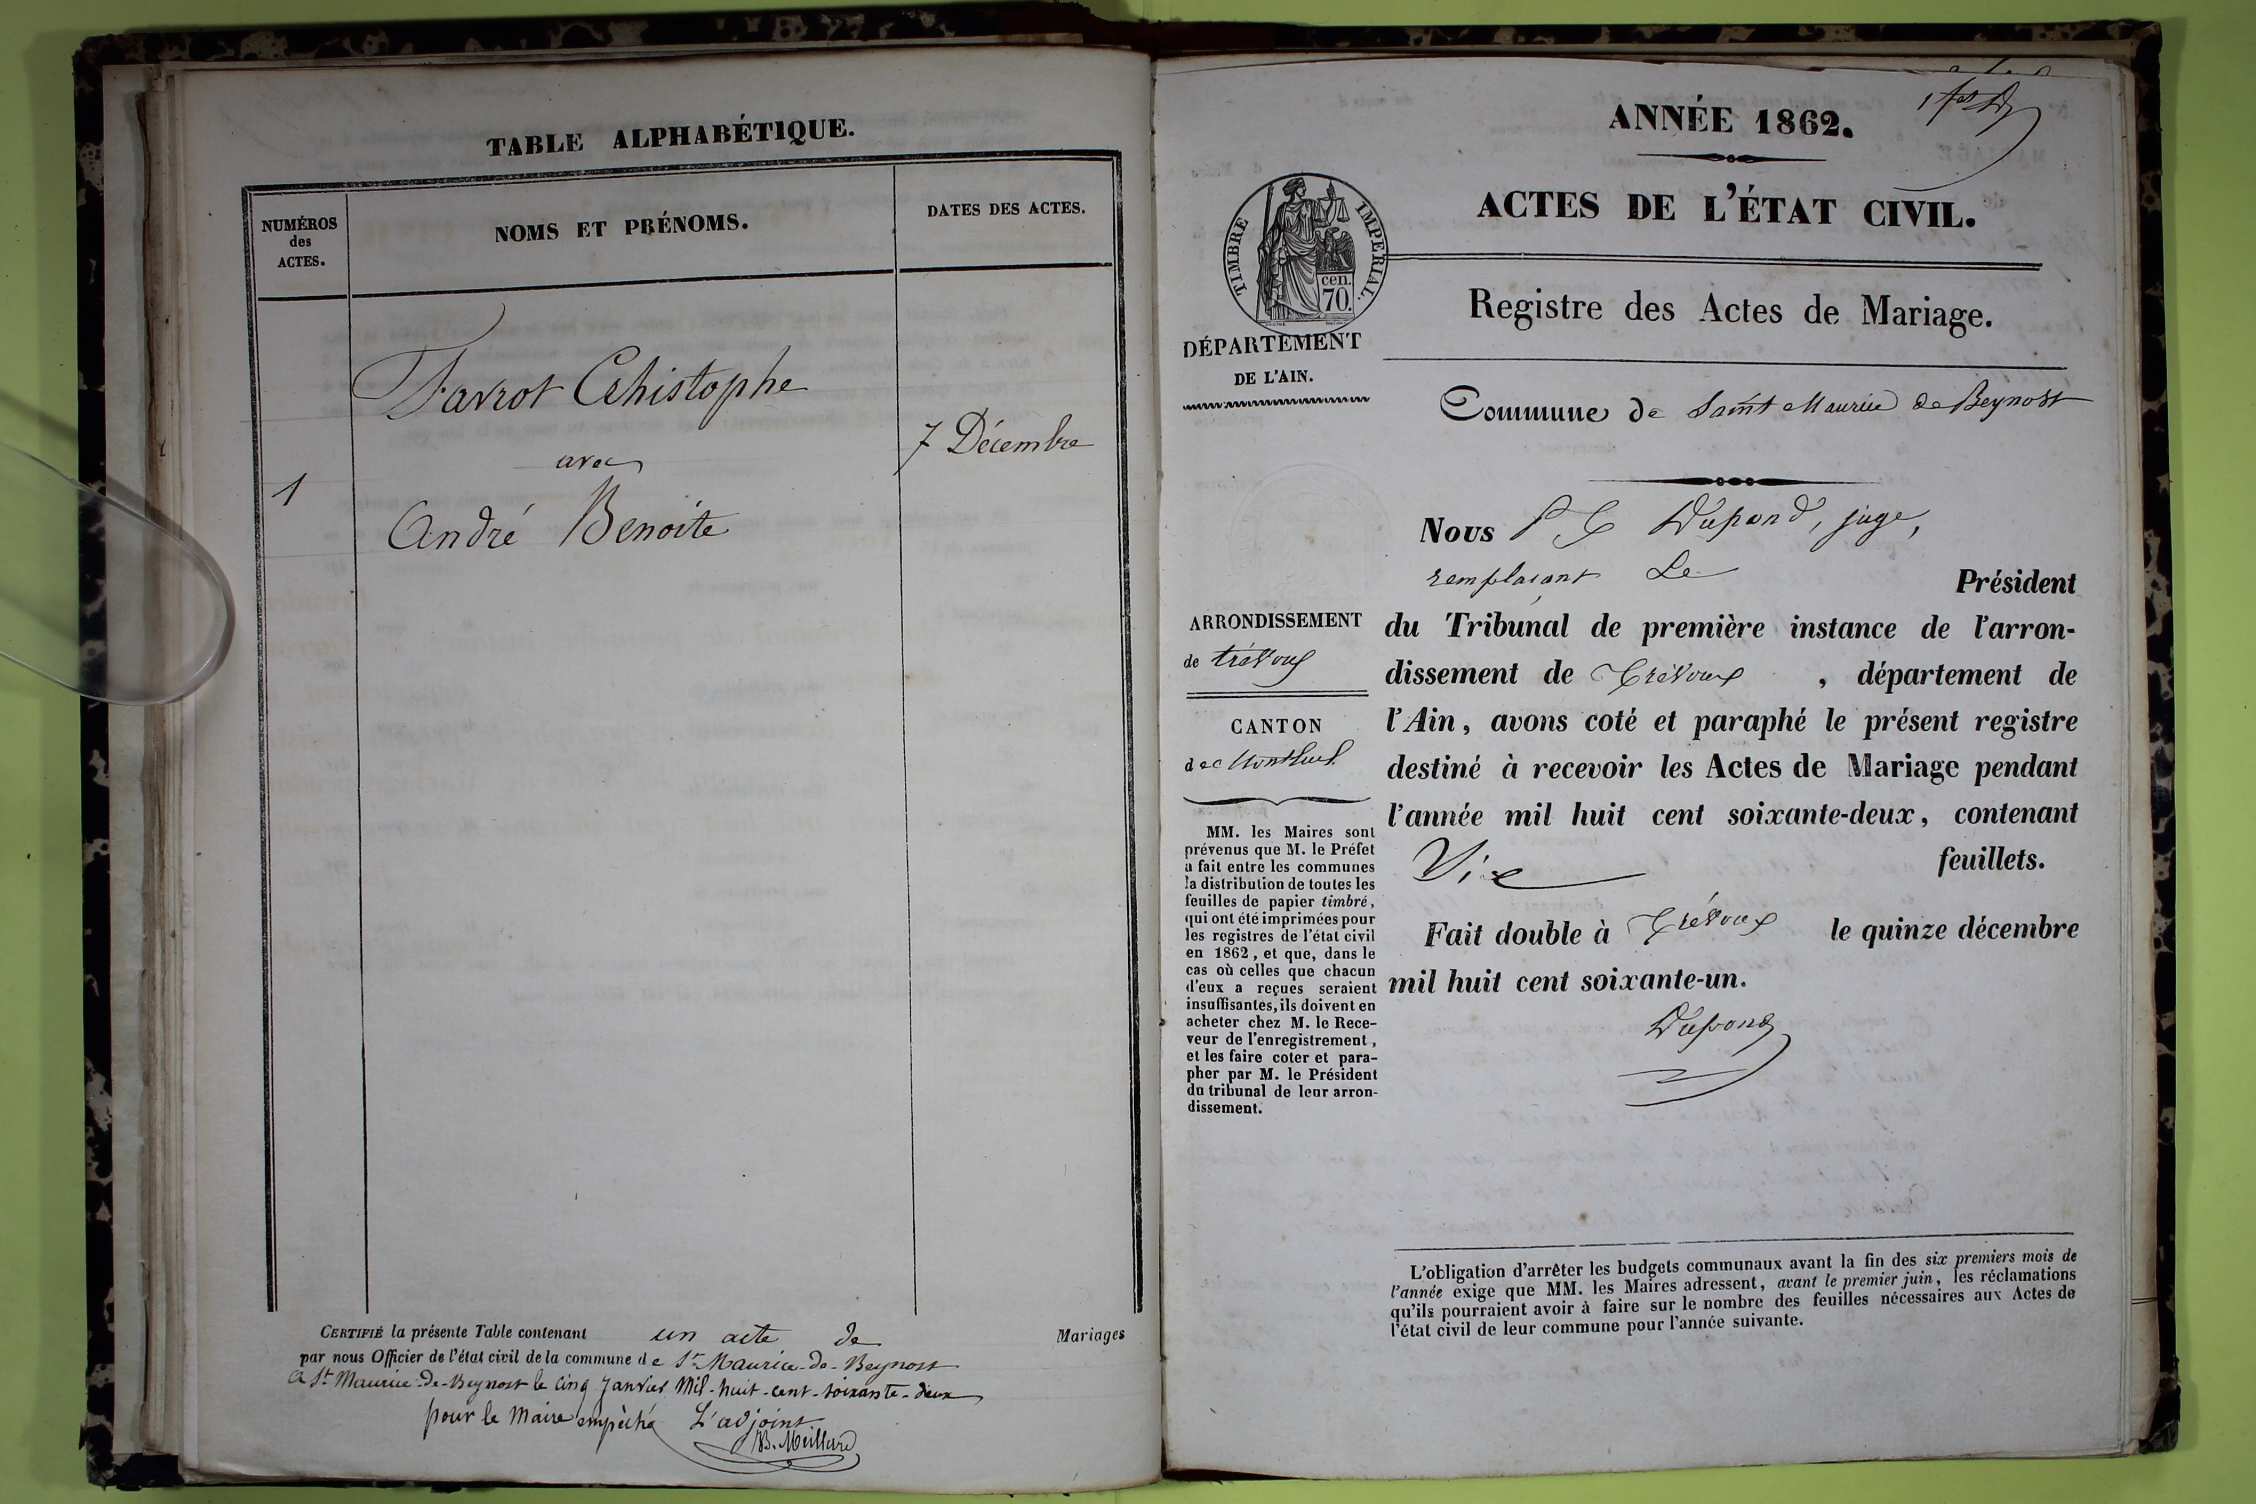 TABLE ALPHABÉTIQUE.
NUMÉROS
des
ACTES.
NOMS ET PRÉNOMS.
DATES DES ACTES.
Favrot Chistophe
avec
7 Décembre
1
André Benoite
CERTIFIÉ la présente Table contenant un acte de Mariages
par nous Officier de l'état civil de la commune de St Maurice-de-Beynost
A St Maurice-de-Beynost le cinq Janvier Mil-huit-cent-soixante-deux
pour le Maire empèché L'adjoint
B. Meillard
ANNÉE 1862.
ACTES DE L'ÉTAT CIVIL.
TIMBRE IMPERIAL.
cen.
70.
Registre des Actes de Mariage.
DÉPARTEMENT
DE L'AIN.
Commune de Saint Maurice de Beynost
Nous P C Dupond, juge,
remplaçant Le Président
du Tribunal de première instance de l'arron-
dissement de Trévoux, département de
l'Ain, avons coté et paraphé le présent registre
destiné à recevoir les Actes de Mariage pendant
l'année mil huit cent soixante-deux, contenant
feuillets.
Fait double à Trévoux le quinze décembre
mil huit cent soixante-un.
Dupond
ARRONDISSEMENT
de Trévoux
CANTON
de Montluel
MM. les Maires sont
prévenus que M. le Préfet
a fait entre les communes
la distribution de toutes les
feuilles de papier timbré,
qui ont été imprimées pour
les registres de l'état civil
en 1862, et que, dans le
cas où celles que chacun
d'eux a reçues seraient
insuffisantes, ils doivent en
acheter chez M. le Rece-
veur de l'enregistrement,
et les faire coter et para-
pher par M. le Président
du tribunal de leur arron-
dissement.
L'obligation d'arrêter les budgets communaux avant la fin des six premiers mois de
l'année exige que MM. les Maires adressent, avant le premier juin, les réclamations
qu'ils pourraient avoir à faire sur le nombre des feuilles nécessaires aux Actes de
l'état civil de leur commune pour l'année suivante.